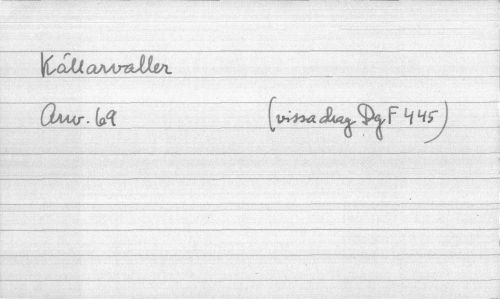 Källarvaller
Arw. 69 (vissa drag DgF 445)